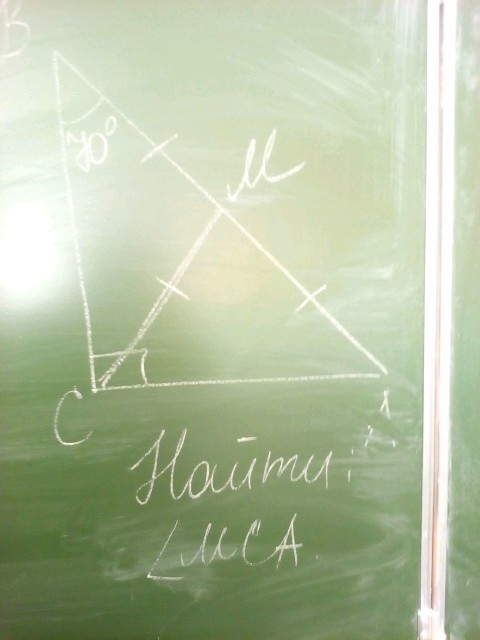 B
70°
M
C
A
Найти:
∠MCA.